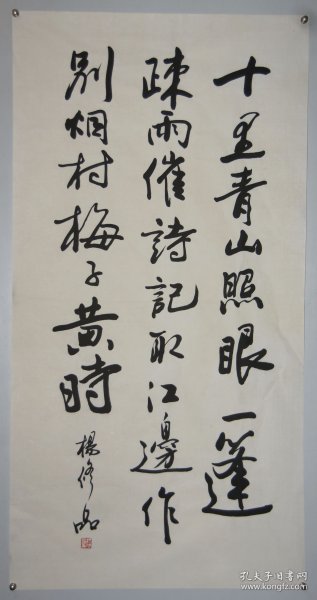 十里青山照眼一篷
疎雨催詩記取江邊作
别烟村梅子黄時
楊修品
孔夫子旧书网
www.kongfz.com